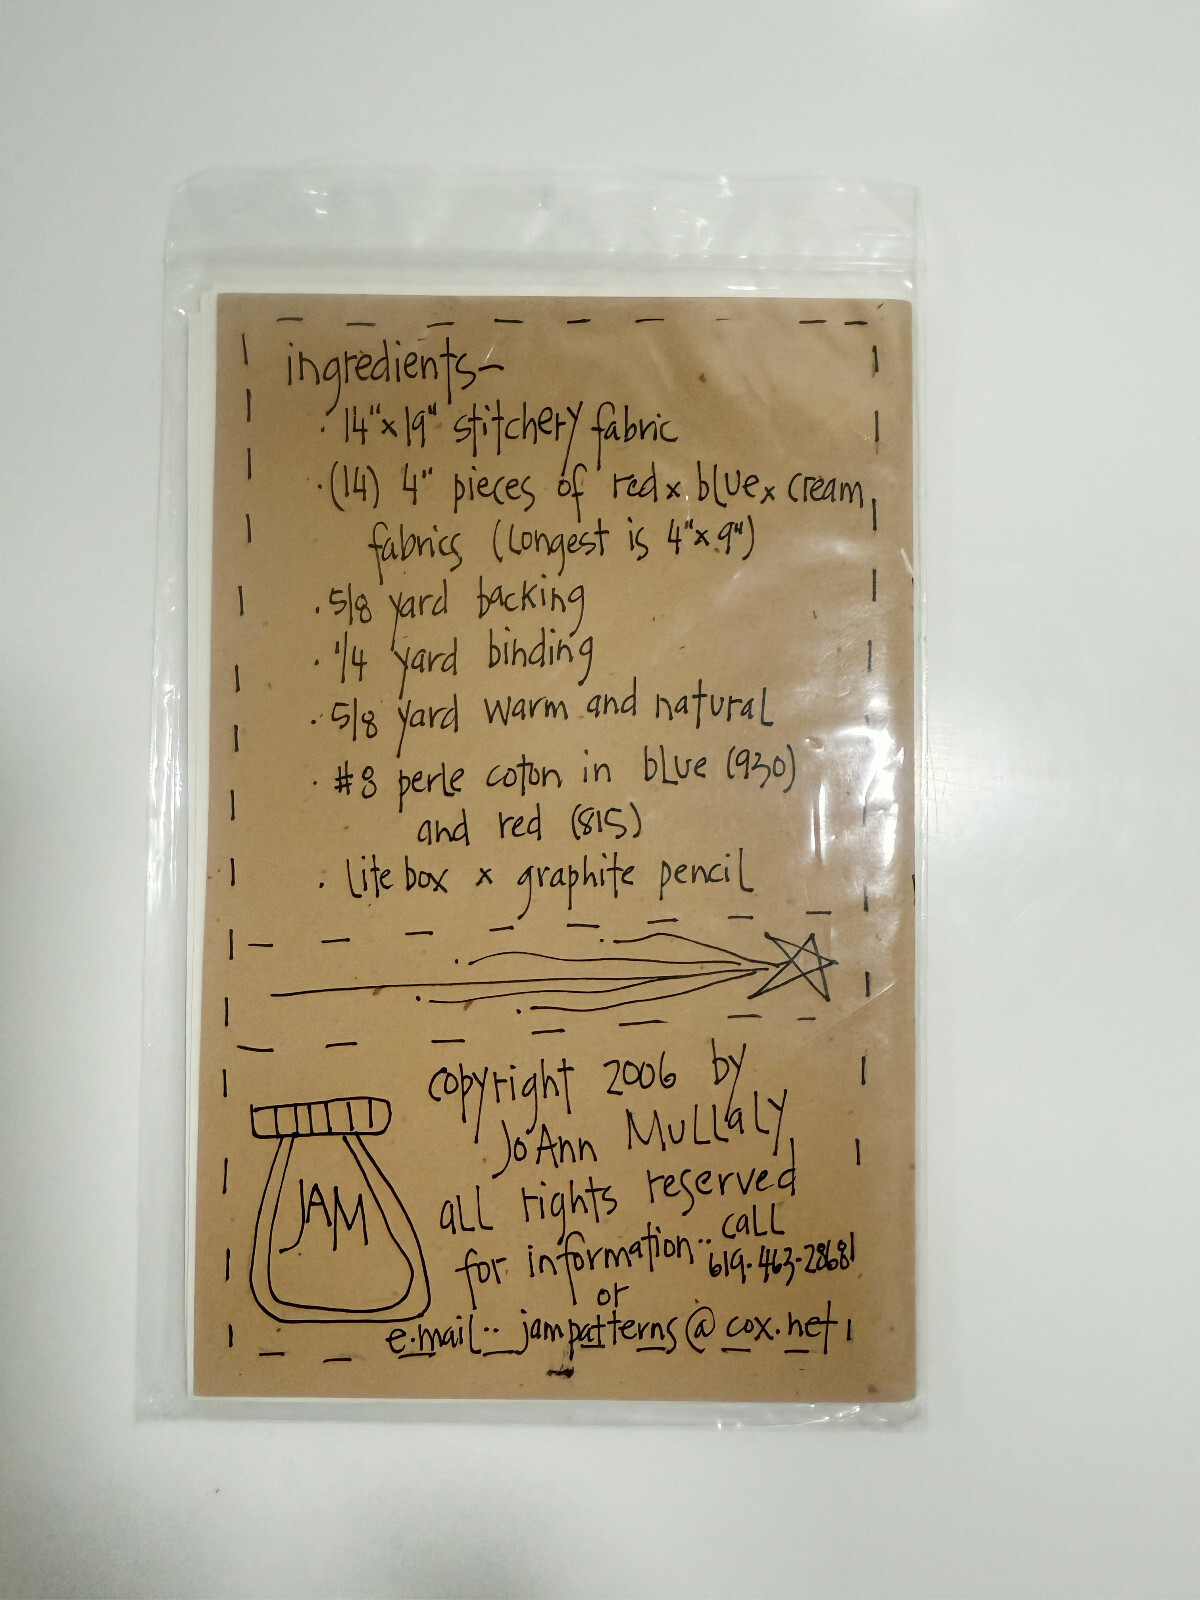 ingredients—
· 14"x19" stitchery fabric
· (14) 4" pieces of red x blue x cream
fabrics (longest is 4"x9")
· 5/8 yard backing
· 1/4 yard binding
· 5/8 yard warm and natural
· #8 perle coton in blue (930)
and red (815)
· lite box x graphite pencil
copyright 2006 by
JoAnn Mullaly
all rights reserved
for information·· call
619·463·2868
or
e·mail·· jampatterns@cox.net
JAM